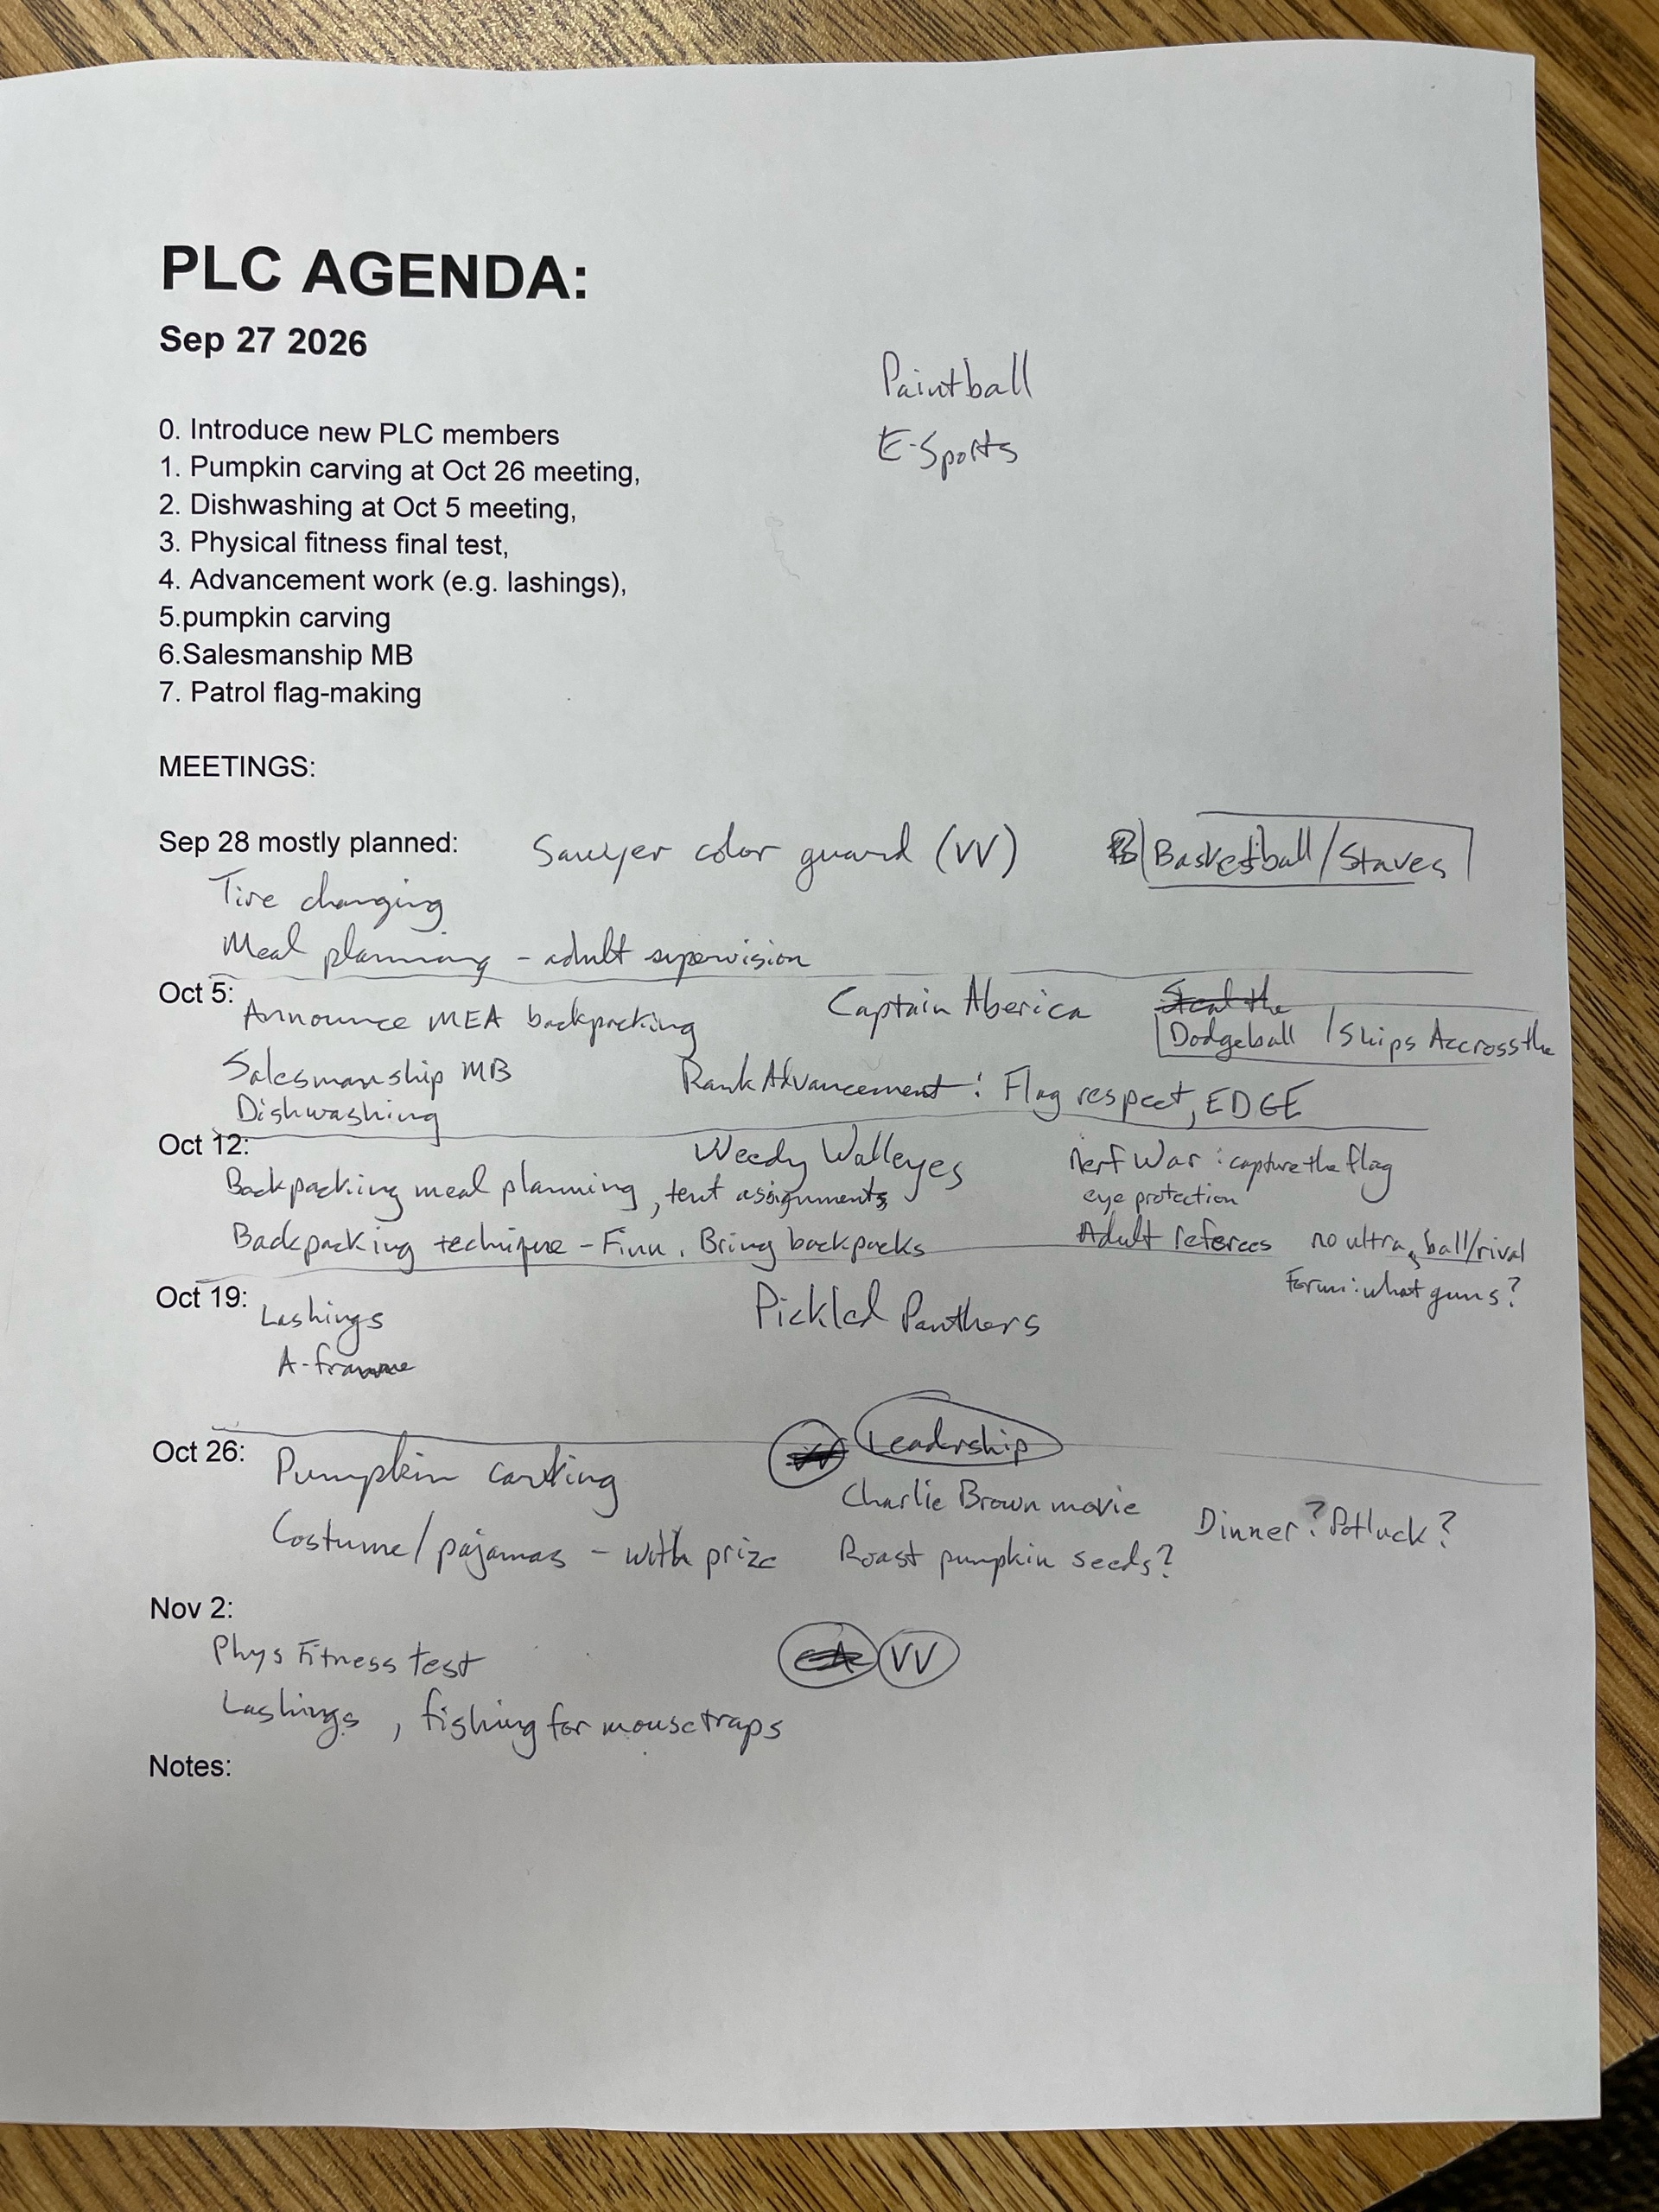 PLC AGENDA:
Sep 27 2026
Paintball
E-Sports
0. Introduce new PLC members
1. Pumpkin carving at Oct 26 meeting,
2. Dishwashing at Oct 5 meeting,
3. Physical fitness final test,
4. Advancement work (e.g. lashings),
5.pumpkin carving
6.Salesmanship MB
7. Patrol flag-making
MEETINGS:
Sep 28 mostly planned: Sawyer color guard (VV) Basketball/Staves
Tire changing
Meal planning - adult supervision
Oct 5: Captain Aberica Steal the
Announce MEA backpacking Dodgeball / Ships Accross the
Salesmanship MB Rank Advancement: Flag respect, EDGE
Dishwashing
Oct 12: Weedy Walleyes Nerf War: capture the flag
Backpacking meal planning, tent assignments eye protection
Backpacking technique - Finn. Bring backpacks Adult referees no ultra, ball/rival
Form: what guns?
Oct 19: Pickled Panthers
Lashings
A-frame
Oct 26: VV Leadership
Pumpkin carving
Charlie Brown movie Dinner? Potluck?
Costume/pajamas - with prize Roast pumpkin seeds?
Nov 2:
Phys Fitness test VV
Lashings, fishing for mousetraps
Notes: